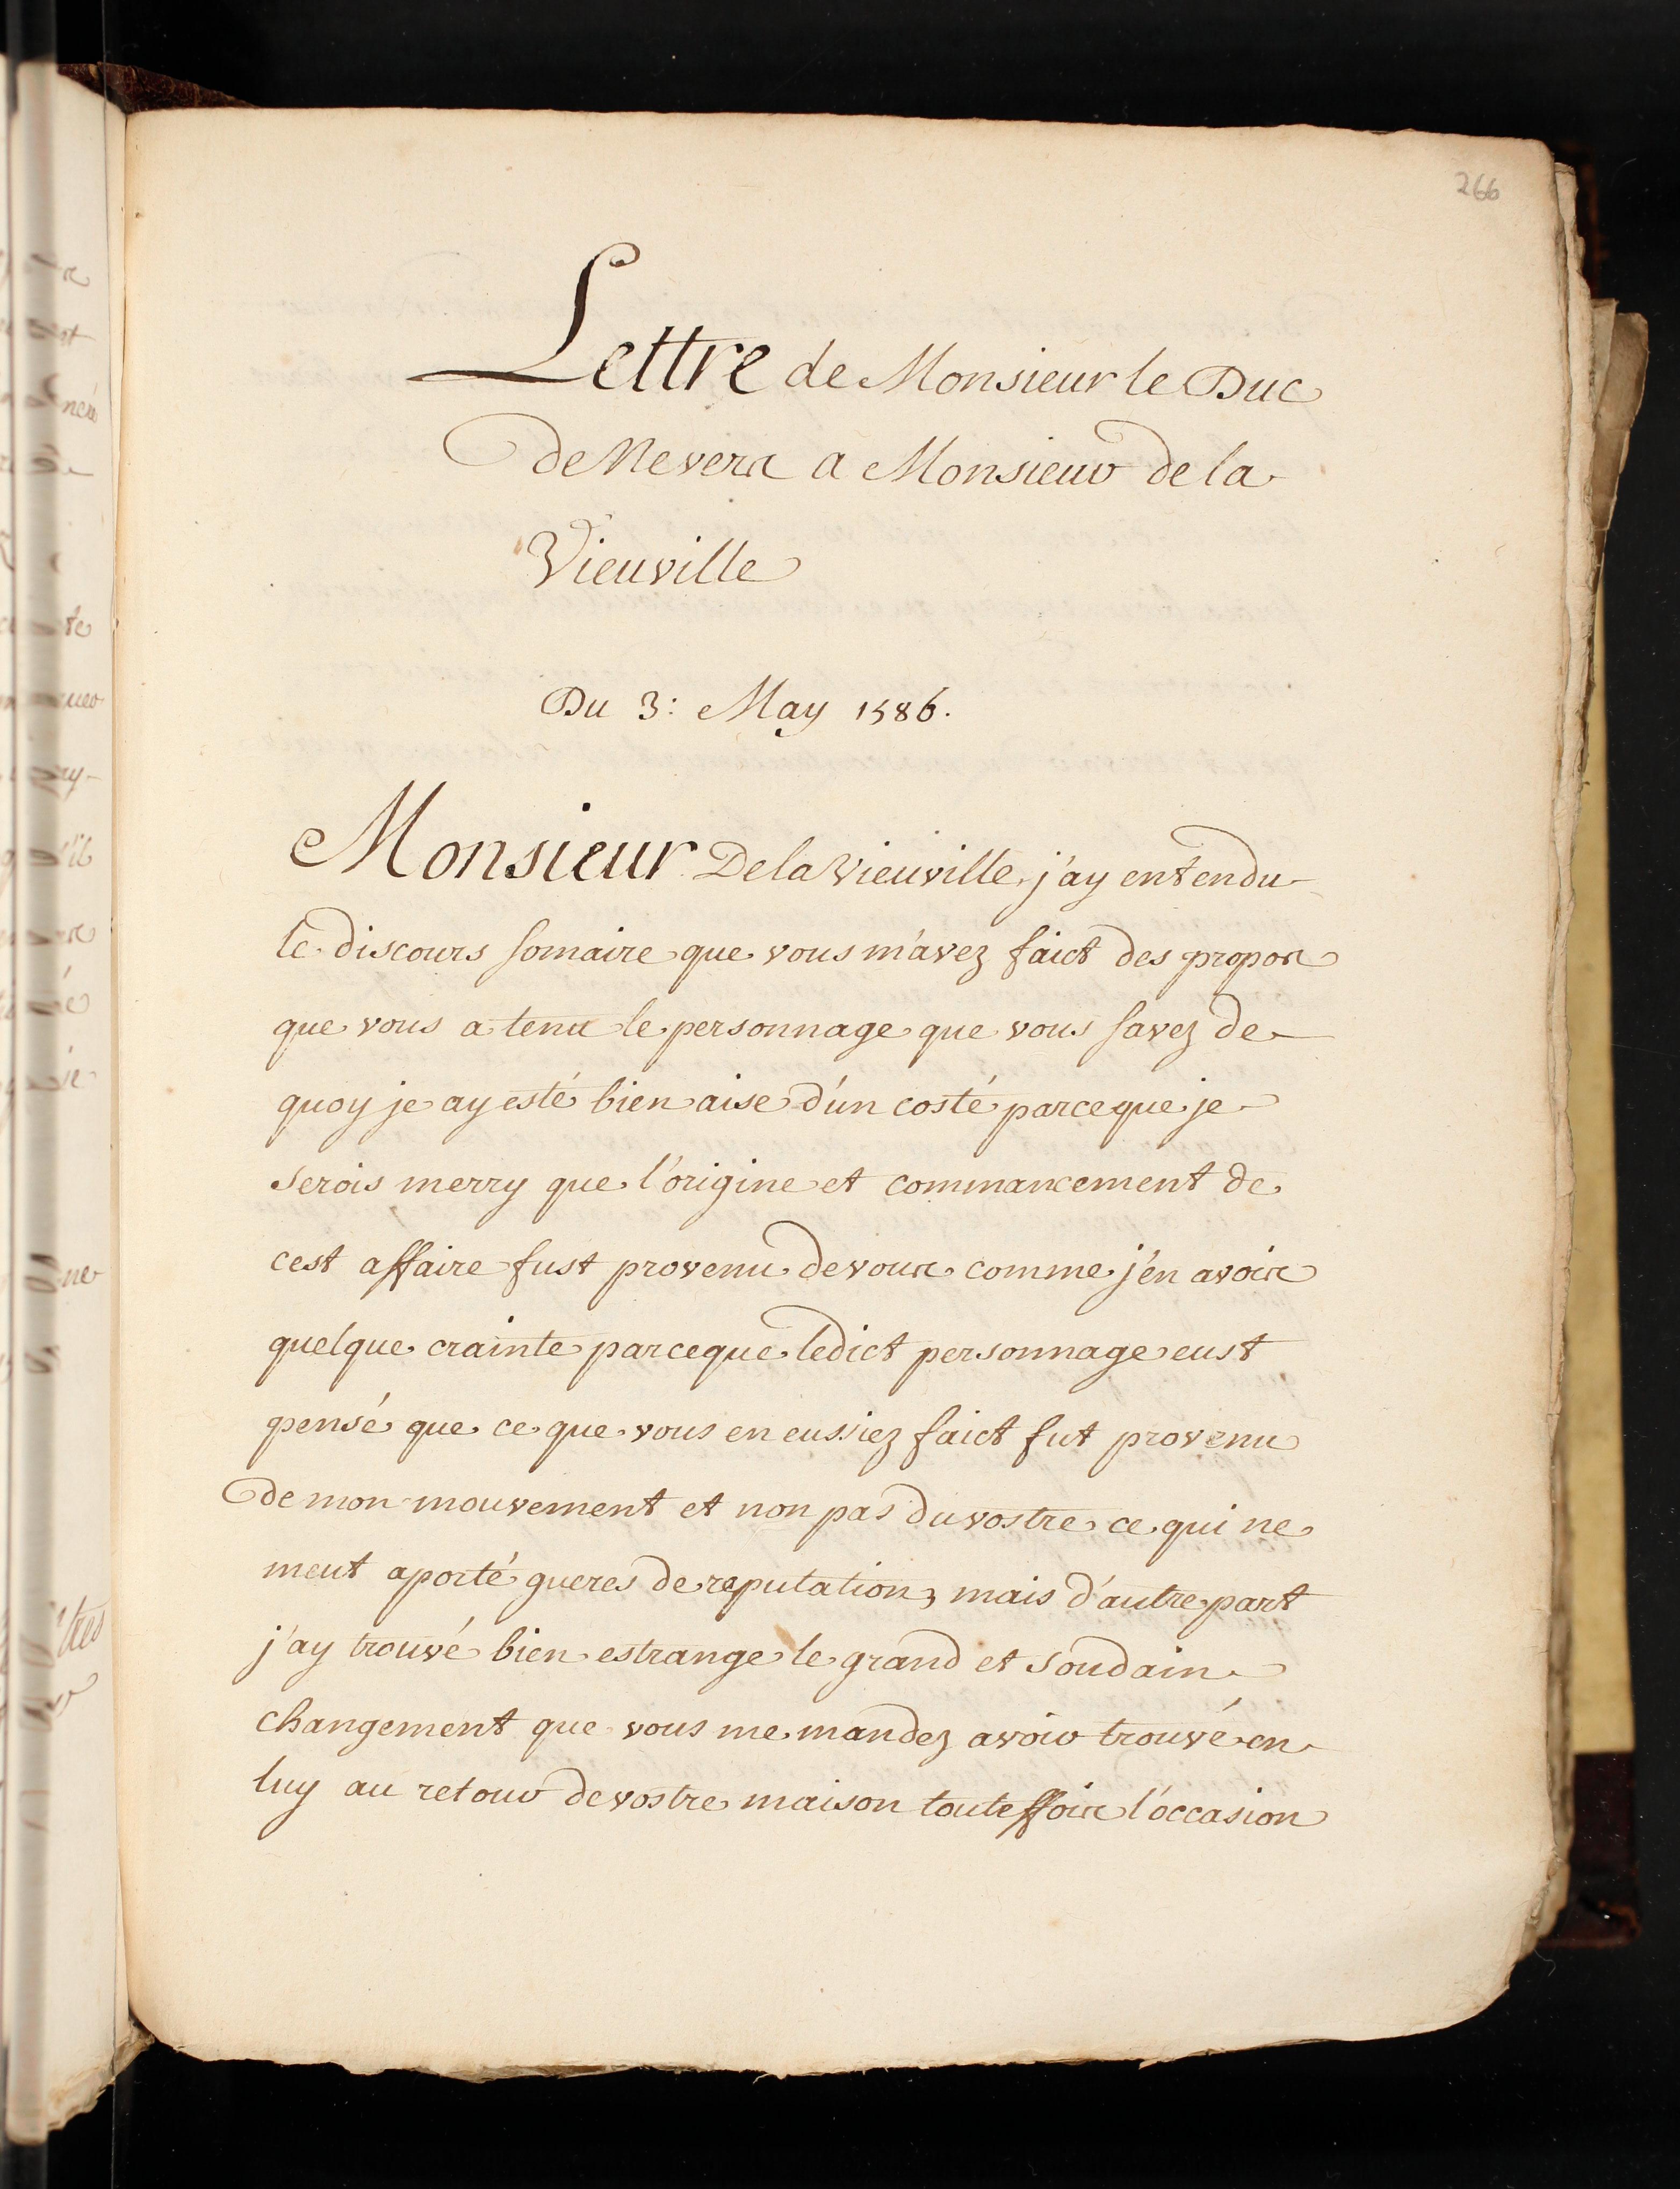 266
Lettre de Monsieur le Duc
de Nevers a Monsieur de la
Vieuville
Du 3: May 1586.
Monsieur De la Vieuville j'ay entendu
le discours somaire que vous m'avez faict des propos
que vous a tenu le personnage que vous savez de
quoy je ay esté bien aise d'un costé parceque je
serois merry que l'origine et commancement de
cest affaire fust provenu de vous comme j'en avois
quelque crainte parceque ledict personnage eust
pensé que ce que vous en eussiez faict fut provenu
de mon mouvement et non pas du vostre ce qui ne
meut aporté gueres de reputation, mais d'autre part
j'ay trouvé bien estrange le grand et soudain
changement que vous me mandez avoir trouvé en
luy au retour de vostre maison touteffois l'occasion